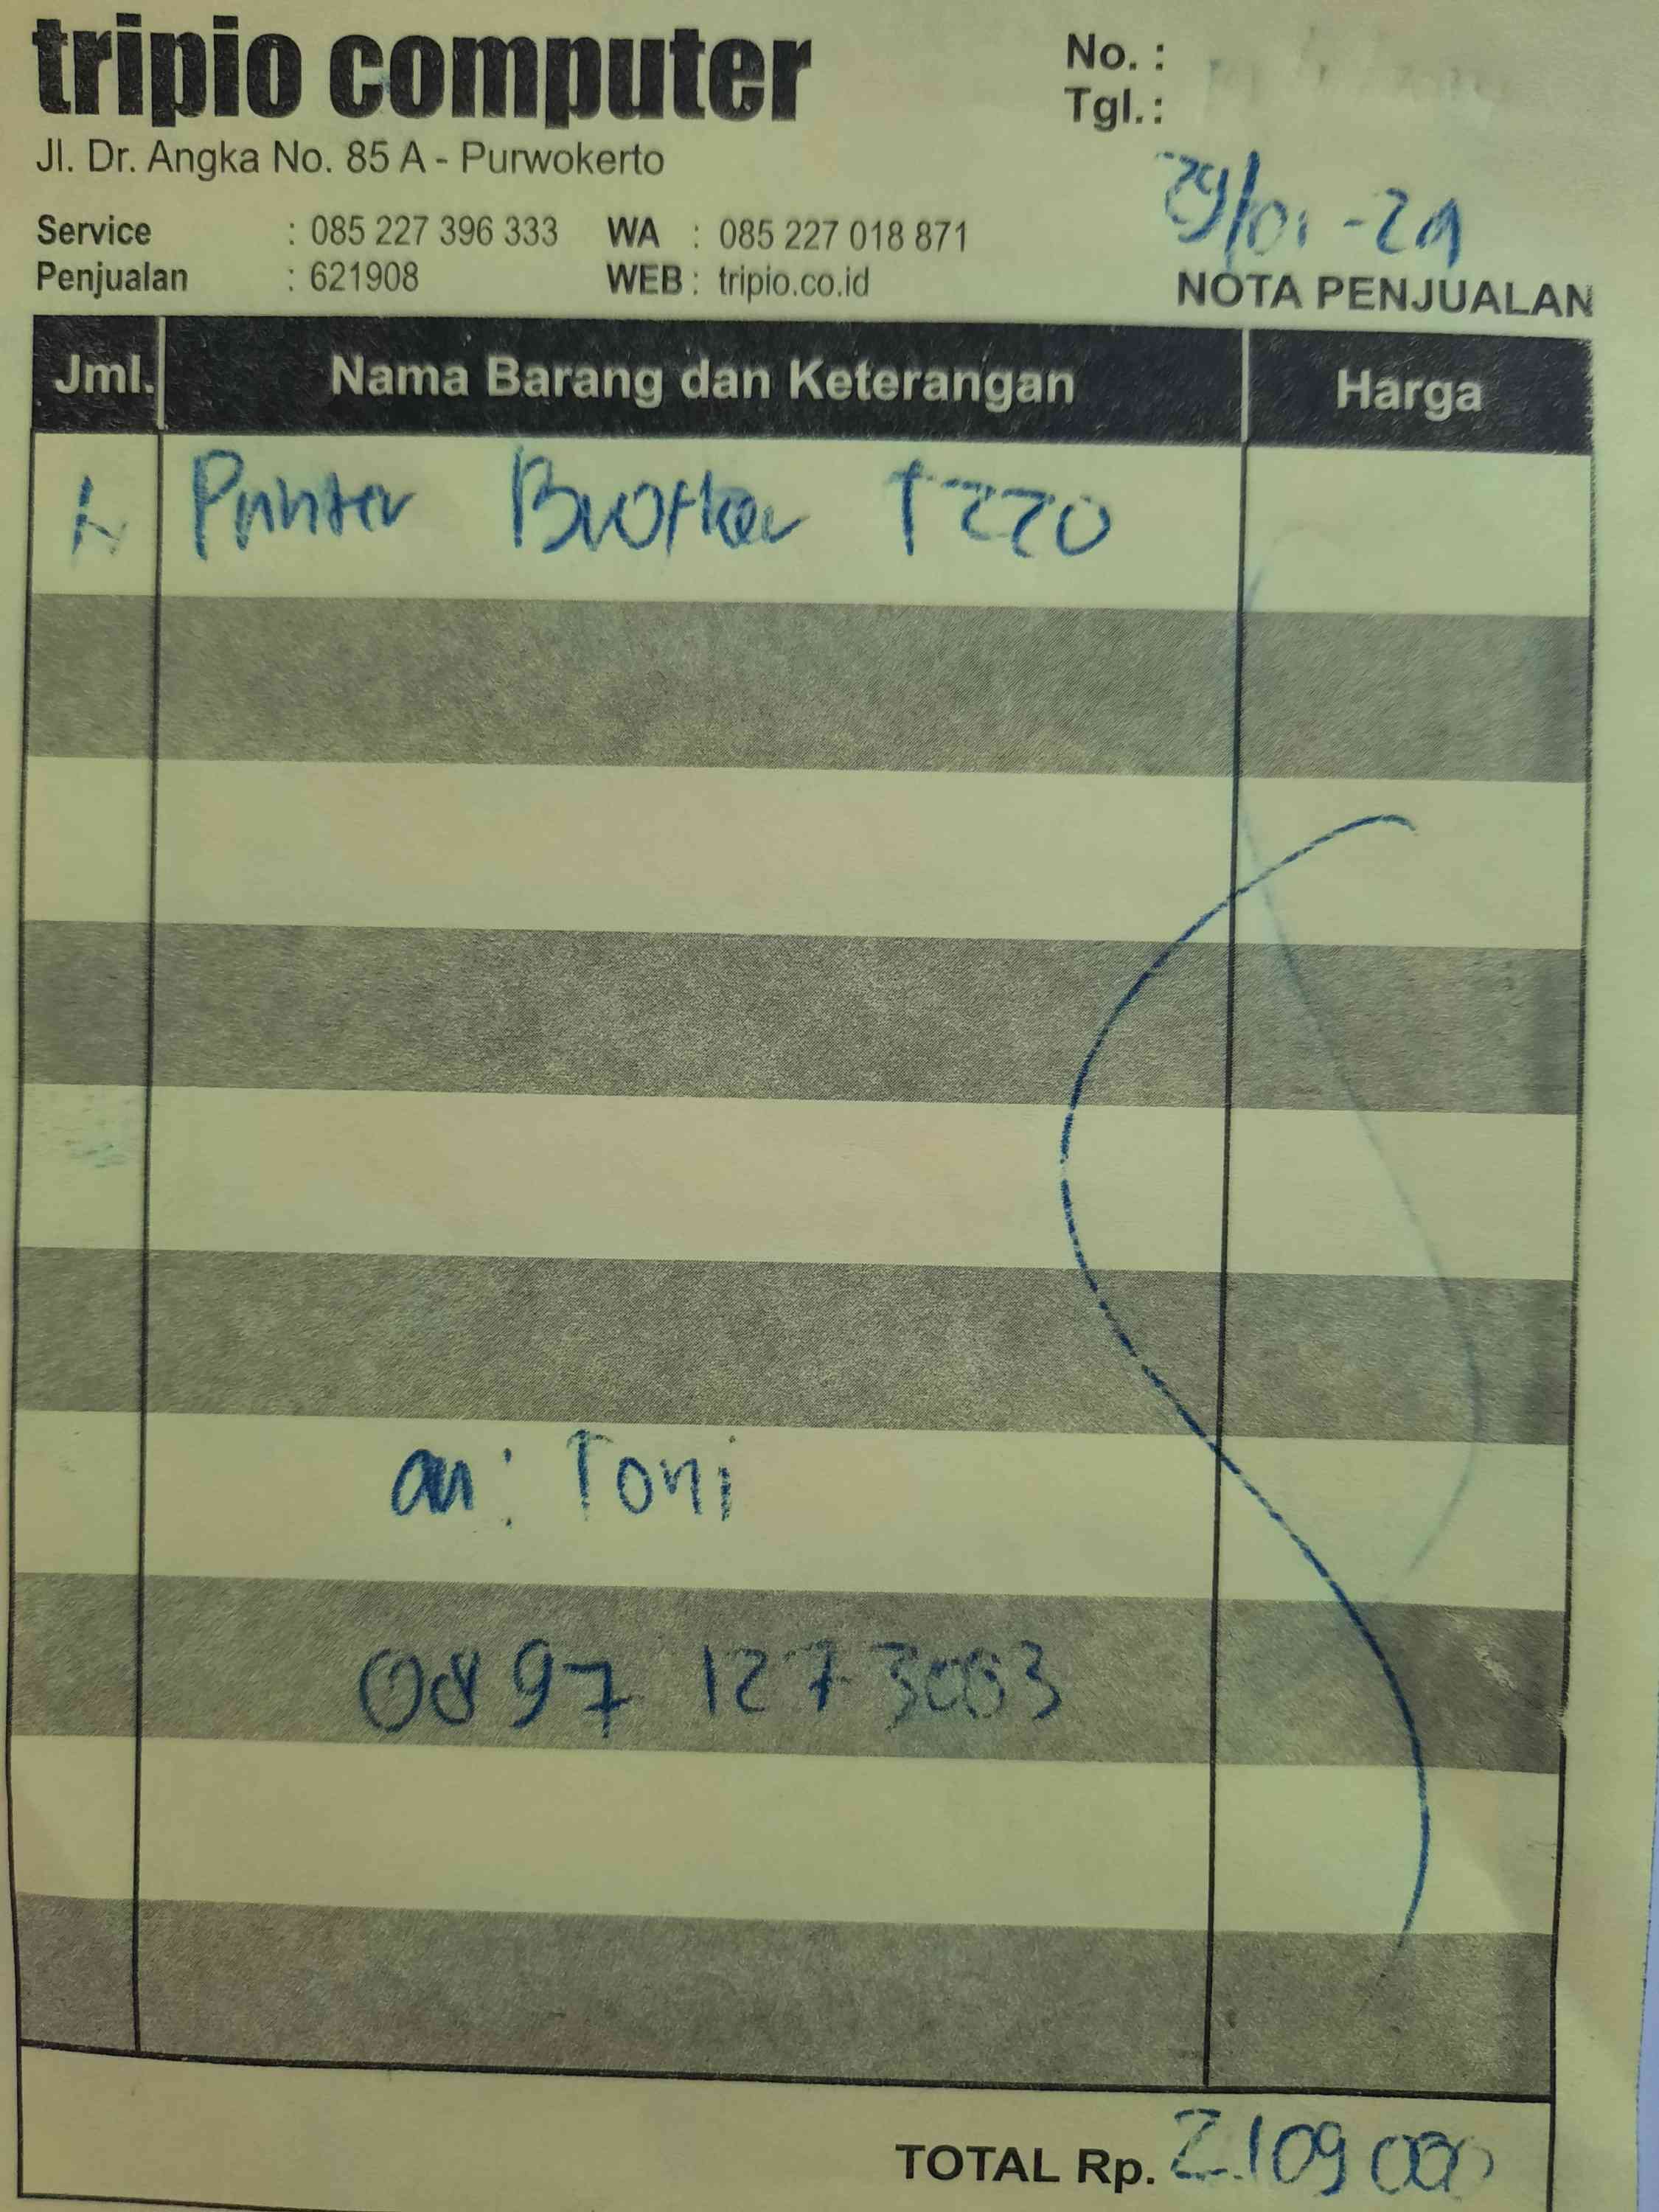 tripio computer
No. :
Tgl. :
Jl. Dr. Angka No. 85 A - Purwokerto
29/01-24
Service : 085 227 396 333 WA : 085 227 018 871
Penjualan : 621908 WEB : tripio.co.id
NOTA PENJUALAN
Jml. Nama Barang dan Keterangan Harga
Printer Brother T220
an: Toni
0897 127 3003
TOTAL Rp. 2.109 000